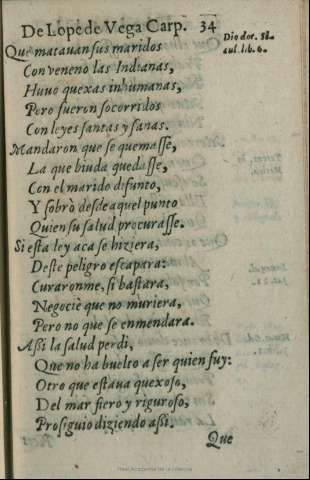 De Lope de Vega Carp. 34
Diodor. si-
cul. lib. 6.
Que matauan sus maridos
Con veneno las Indianas,
Huuo quexas inhumanas,
Pero fueron socorridos
Con leyes santas y sanas.
Mandaron que se quemasse,
La que biuda quedasse,
Con el marido difunto,
Y sobrò desde aquel punto
Quien su salud procurasse.
Si esta ley aca se hiziera,
Deste peligro escapara:
Curaronme, si bastara,
Negociè que no muriera,
Pero no que se enmendara.
Assi la salud perdi,
Que no ha buelto a ser quien fuy:
Otro que estaua quexoso,
Del mar fiero y riguroso,
Prosiguio diziendo assi.
Que